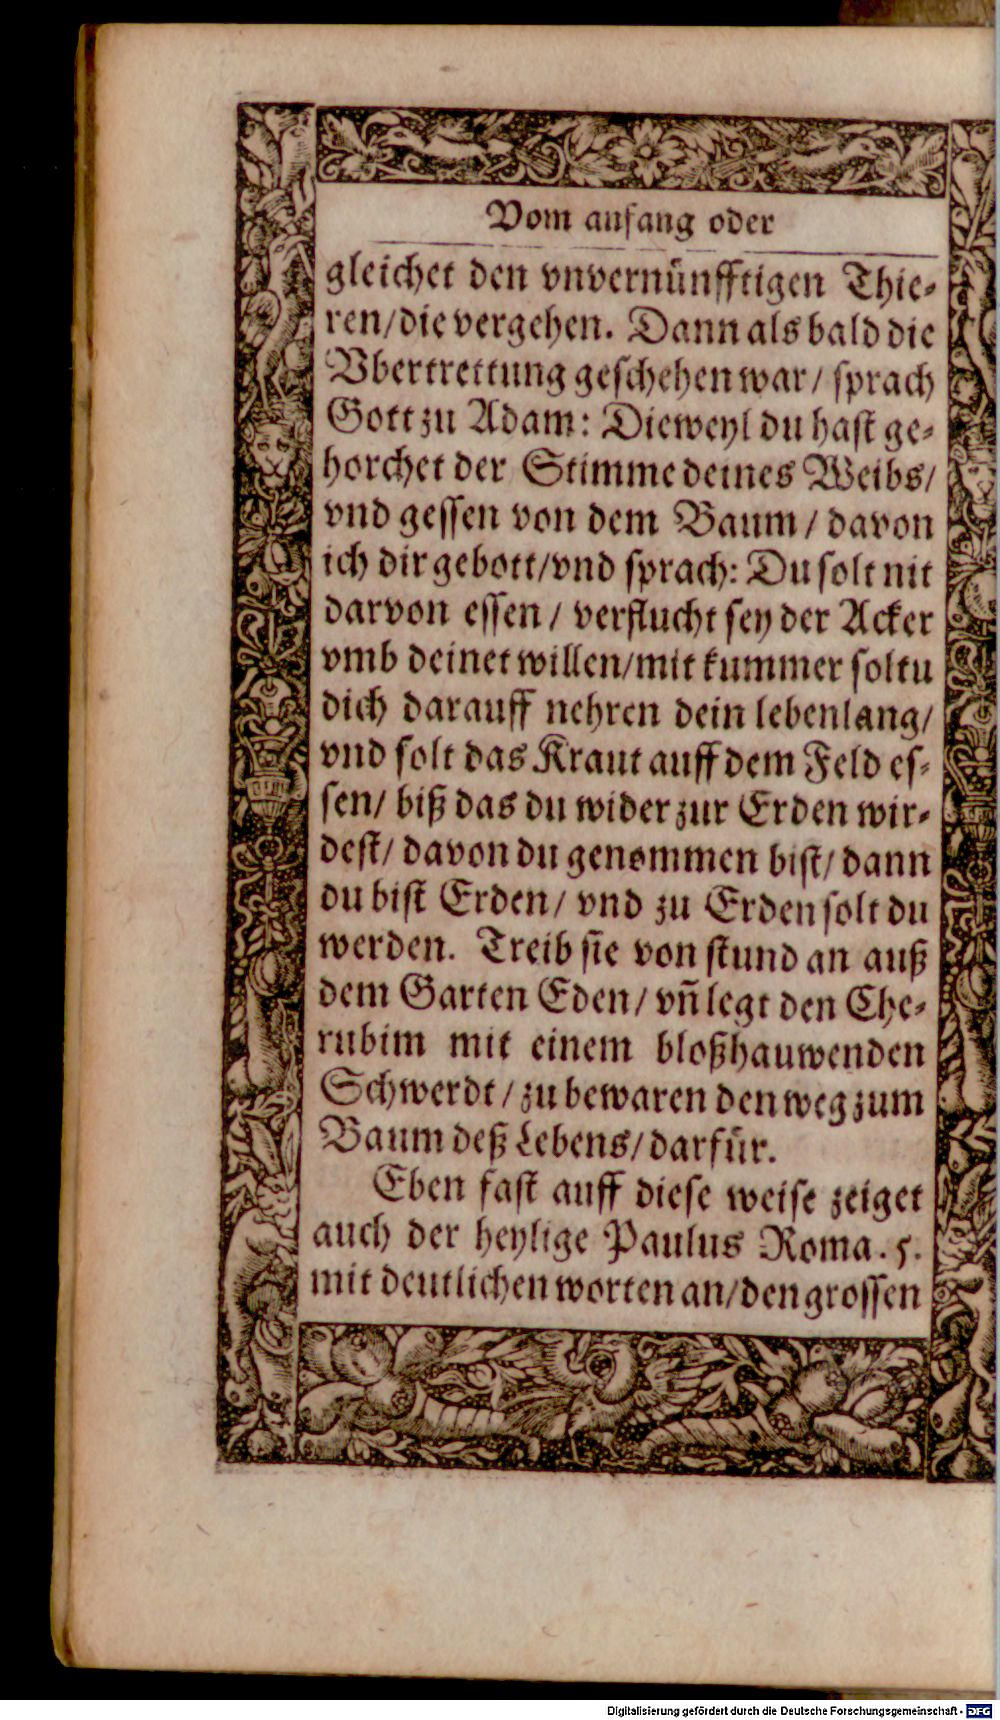 Vom anfang oder
gleichet den vnvernünfftigen Thie-
ren/die vergehen. Dann als bald die
Vbertrettung geschehen war/ sprach
Gott zu Adam: Dieweyl du hast ge-
horchet der Stimme deines Weibs/
vnd gessen von dem Baum/ davon
ich dir gebott/vnd sprach: Du solt nit
darvon essen/ verflucht sey der Acker
vmb deinet willen/mit kummer soltu
dich darauff nehren dein lebenlang/
vnd solt das Kraut auff dem Feld es-
sen/ biß das du wider zur Erden wir-
dest/ davon du genommen bist/ dann
du bist Erden/ vnd zu Erden solt du
werden. Treib sie von stund an auß
dem Garten Eden/ vn̄ legt den Che-
rubim mit einem bloßhauwenden
Schwerdt/ zu bewaren den weg zum
Baum deß Lebens/ darfür.
Eben fast auff diese weise zeiget
auch der heylige Paulus Roma. 5.
mit deutlichen worten an/den grossen
Digitalisierung gefördert durch die Deutsche Forschungsgemeinschaft - DFG